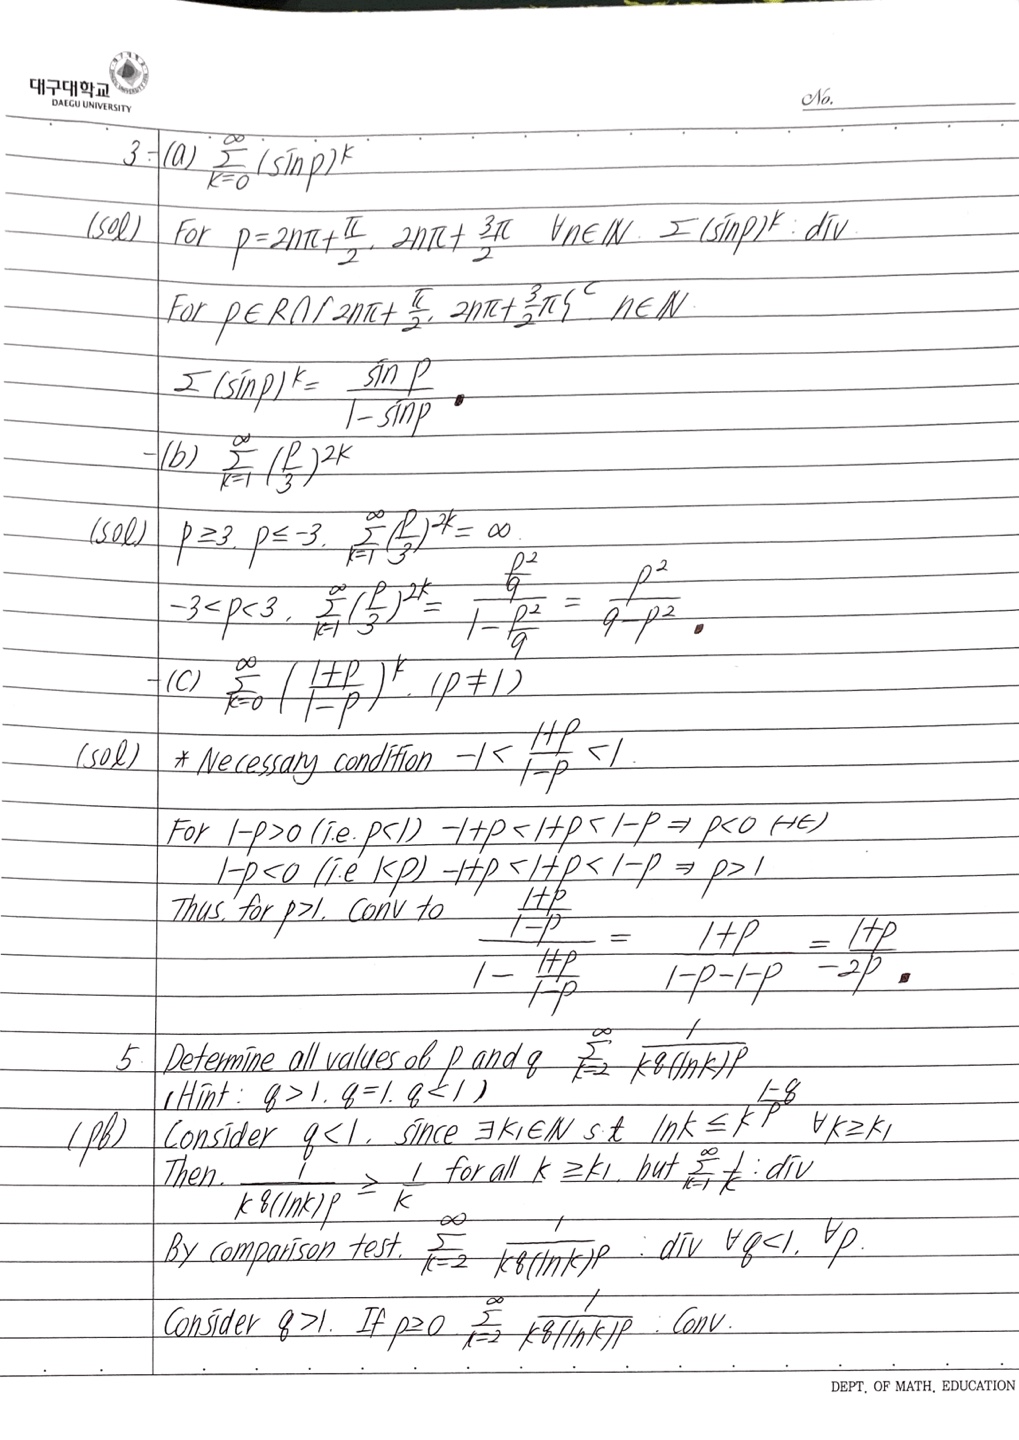 대구대학교
DAEGU UNIVERSITY
No.
3. (a) ∑_{k=0}^{∞} (sin p)^k
(sol) For p=2nπ+π/2, 2nπ+3π/2 ∀n∈ℕ. Σ(sin p)^k : div.
For p∈R∩{2nπ+π/2, 2nπ+3/2π}^c n∈ℕ.
Σ(sin p)^k = sin p/(1-sin p).
(b) ∑_{k=1}^{∞} (p/3)^{2k}
(sol) p≥3, p≤-3, ∑_{k=1}^{∞} (p/3)^{2k} = ∞.
-3<p<3, ∑_{k=1}^{∞} (p/3)^{2k} = (p²/9)/(1-p²/9) = p²/(9-p²).
(c) ∑_{k=0}^{∞} ((1+p)/(1-p))^k. (p≠1)
(sol) * Necessary condition -1 < (1+p)/(1-p) < 1.
For 1-p>0 (i.e. p<1) -1+p<1+p<1-p ⇒ p<0
1-p<0 (i.e 1<p) -1+p<1+p<1-p ⇒ p>1
Thus, for p>1. conv to ((1+p)/(1-p))/(1-(1+p)/(1-p)) = (1+p)/(1-p-1-p) = (1+p)/(-2p).
5. Determine all values of p and q ∑_{k=2}^{∞} 1/(k^q(ln k)^p)
(Hint: q>1, q=1, q<1)
(pf) Consider q<1, since ∃k₁∈ℕ s.t ln k ≤ k^{(1-q)/p} ∀k≥k₁
Then, 1/(k^q(ln k)^p) ≥ 1/k for all k≥k₁, but ∑_{k=1}^{∞} 1/k : div
By comparison test, ∑_{k=2}^{∞} 1/(k^q(ln k)^p) : div ∀q<1, ∀p.
Consider q>1. If p≥0 ∑_{k=2}^{∞} 1/(k^q(ln k)^p) : Conv.
DEPT. OF MATH. EDUCATION